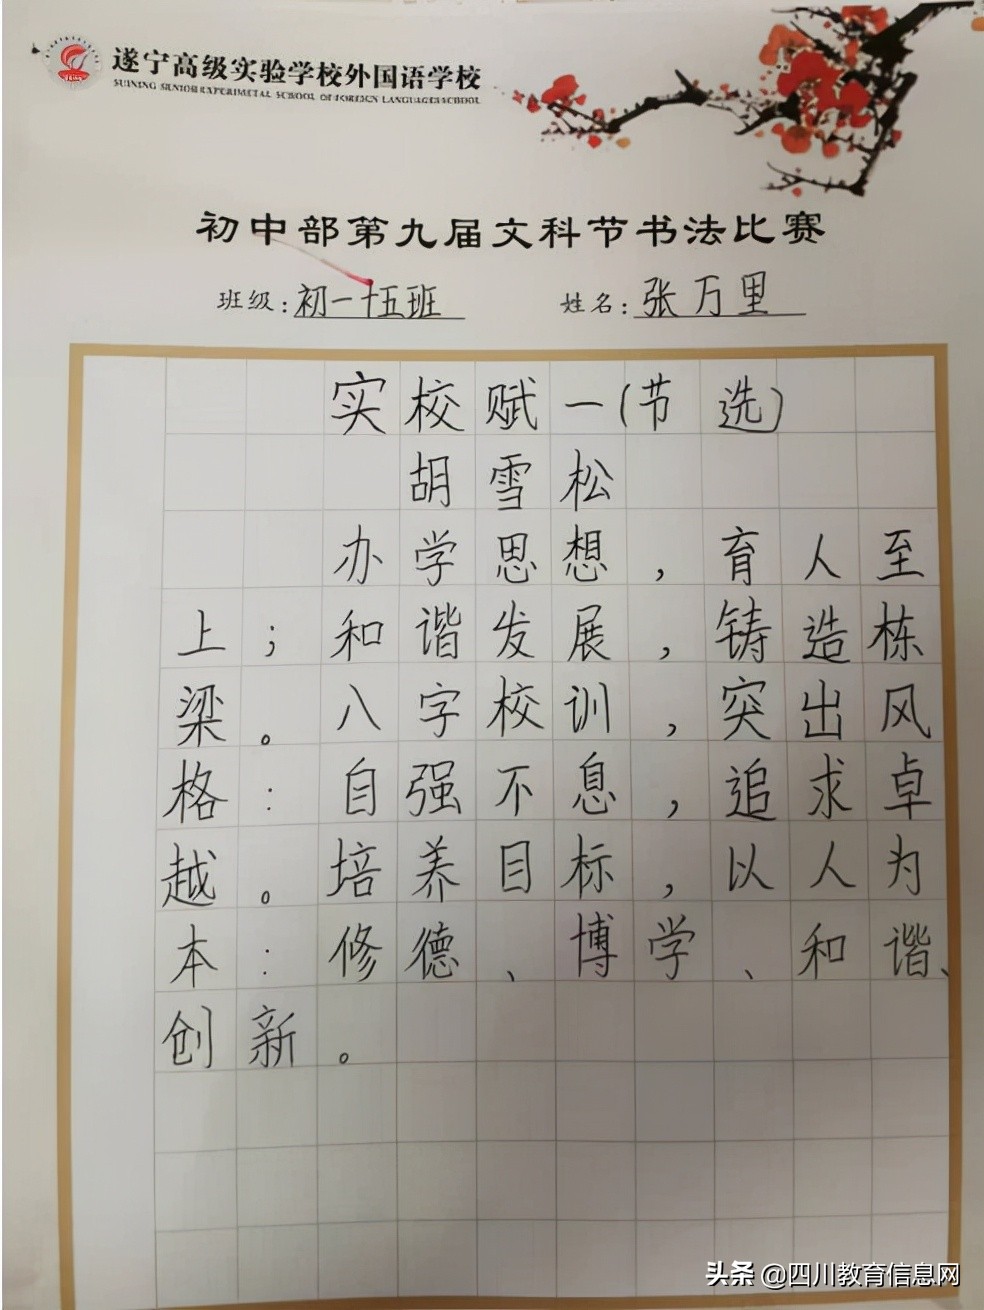 遂宁高级实验学校外国语学校
SUINING SENIOR EXPERIMETAL SCHOOL OF FOREIGN LANGUAGES SCHOOL
初中部第九届文科节书法比赛
班级:初一十五班 姓名:张万里
实校赋一(节选)
胡雪松
办学思想,育人至
上;和谐发展,铸造栋
梁。八字校训,突出风
格:自强不息,追求卓
越。培养目标,以人为
本:修德、博学、和谐、
创新。
头条 @四川教育信息网